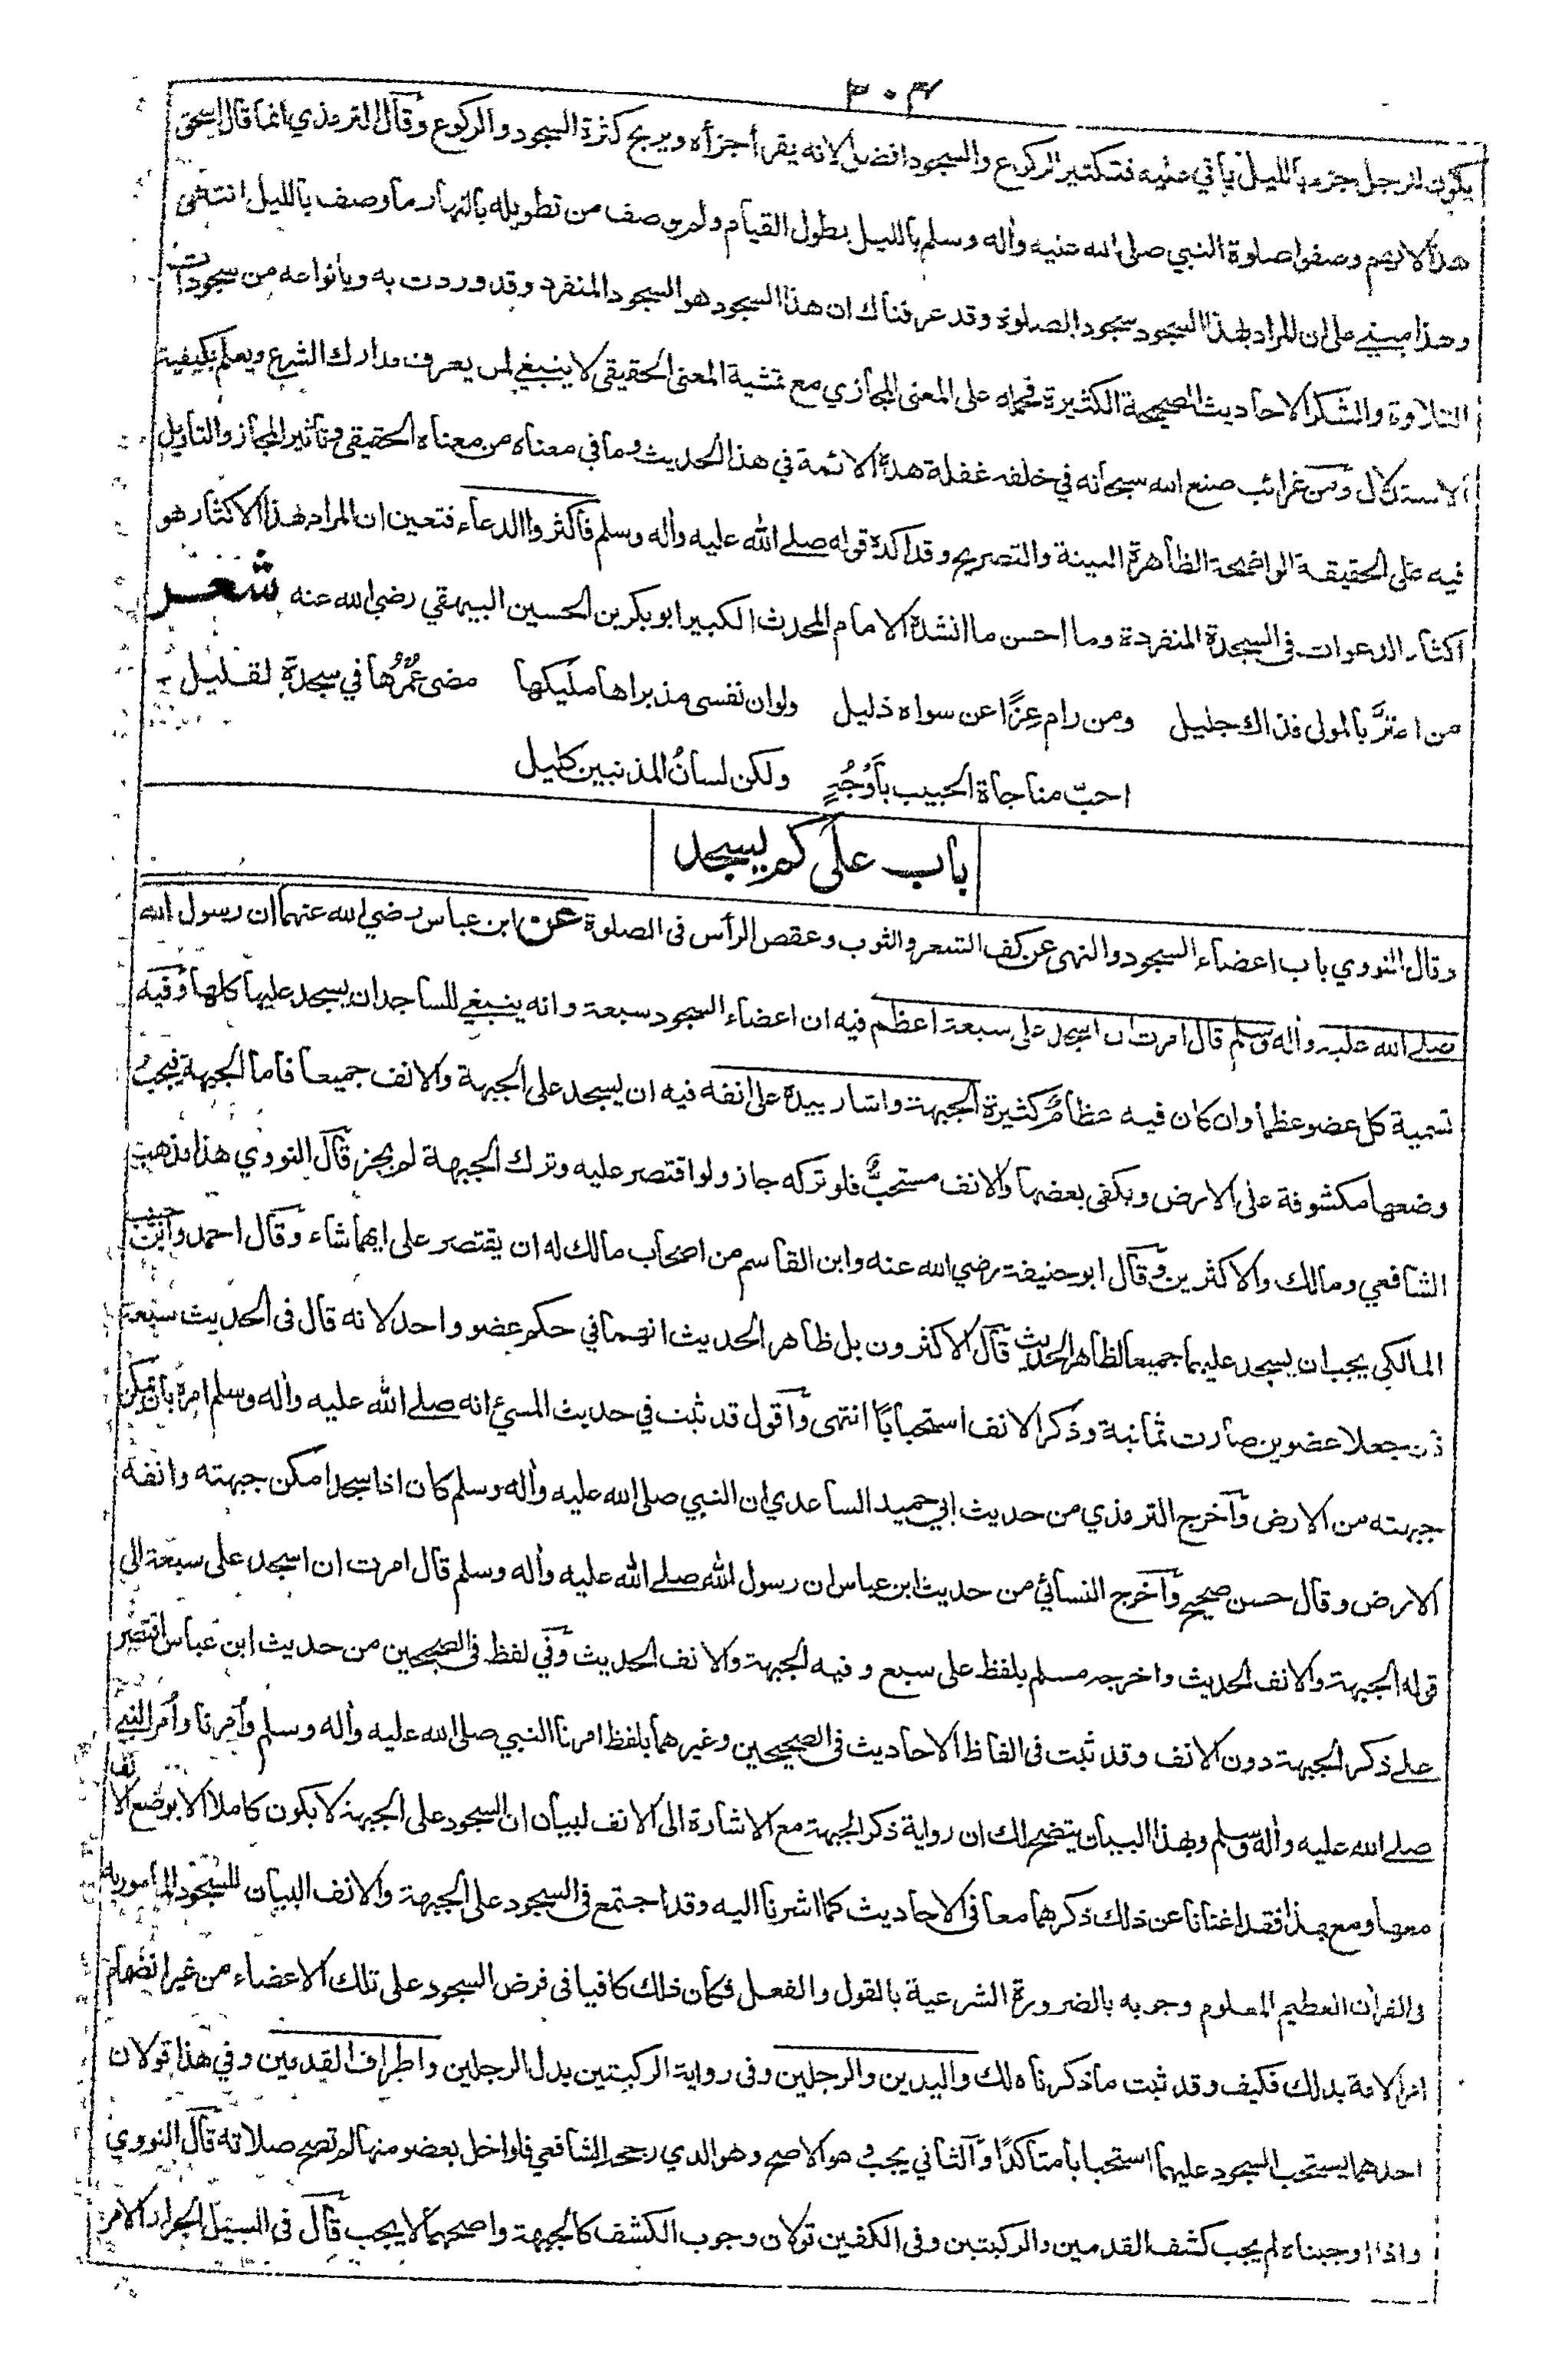 ٣٠٤
يكون لرجل جزء بالليل يأتي عليه فتكثير الركوع والسجود افضل لانه يقرأ جزأه ويربح كثرة السجود والركوع وقال الترمذي انما قال اسحق
هذا لانهم وصفوا صلوة النبي صلى الله عليه وأله وسلم بالليل بطول القيام ولم يوصف من تطويله بالنهار ما وصف بالليل انتهى
وهذا مبني على ان المراد بهذا السجود سجود الصلوة وقد عرفناك ان هذا السجود هو السجود المنفرد وقد وردت به وبأنواعه من سجودات
التلاوة والشكر الاحاديث الصحيحة الكثيرة فحمله على المعنى المجازي مع تمشية المعنى الحقيقي لا ينبغي لمن يعرف مدارك الشرع ويعلم بكيفية
الاستدلال ومن غرائب صنع الله سبحانه في خلقه غفلة هذه الائمة في هذا الحديث وما في معناه من معناه الحقيقي وتأثير المجاز والتأويل
فيه على الحقيقة الواضحة الظاهرة البينة والتصريح وقد اكده قوله صلى الله عليه وأله وسلم فأكثروا الدعاء فتعين ان المراد بهذا الاكثار هو
اكثار الدعوات في السجدة المنفردة وما احسن ما انشده الامام المحدث الكبير ابو بكر بن الحسين البيهقي رضي الله عنه شعر
من اعتزَّ بالمولى فذاك جليل ومن رام عِزًّا عن سواه ذليل ولو ان نفسي مذ براها مليكها مضى عُمُرُها في سجدةٍ لقليل
احبّ مناجاة الحبيب بأَوْجُهٍ ولكن لسانُ المذنبين كليل
باب على كم يسجد
وقال النووي باب اعضاء السجود والنهي عن كف الشعر والثوب وعقص الرأس في الصلوة عن ابن عباس رضي الله عنهما ان رسول الله
صلى الله عليه وأله وسلم قال امرت ان اسجد على سبعة اعظم فيه ان اعضاء السجود سبعة وانه ينبغي للساجد ان يسجد عليها كلها وفيه
تسمية كل عضو عظما وان كان فيه عظام كثيرة الجبهة واشار بيده على انفه فيه ان يسجد على الجبهة والانف جميعا فاما الجبهة فيجب
وضعها مكشوفة على الارض ويكفي بعضها والانف مستحبٌّ فلو تركه جاز ولو اقتصر عليه وترك الجبهة لم يجز قال النووي هذا مذهب
الشافعي ومالك والاكثرين وقال ابو حنيفة رضي الله عنه وابن القاسم من اصحاب مالك له ان يقتصر على ايهما شاء وقال احمد وابن حبيب
المالكي يجب ان يسجد عليهما جميعا لظاهر الحديث قال الاكثرون بل ظاهر الحديث انهما في حكم عضو واحد لانه قال في الحديث سبعة
فان جعلا عضوين صارت ثمانية وذكر الانف استحبابًا انتهى وأقول قد ثبت في حديث المسيء انه صلى الله عليه وأله وسلم امره بأن يمكن
جبهته من الارض وأخرج الترمذي من حديث ابي حميد الساعدي ان النبي صلى الله عليه وأله وسلم كان اذا سجد امكن جبهته وانفه
الارض وقال حسن صحيح وأخرج النسائي من حديث ابن عباس ان رسول الله صلى الله عليه وأله وسلم قال امرت ان اسجد على سبعة الى
قوله الجبهة والانف الحديث واخرجه مسلم بلفظ على سبع وفيه الجبهة والانف الحديث وفي لفظ في الصحيحين من حديث ابن عباس اقتصر
على ذكر الجبهة دون الانف وقد ثبت في الفاظ الاحاديث في الصحيحين وغيرهما بلفظ امرنا النبي صلى الله عليه وأله وسلم وأمرنا وأُمر النبي
صلى الله عليه وأله وسلم وبهذا البيان يتضح لك ان رواية ذكر الجبهة مع الاشارة الى الانف لبيان ان السجود على الجبهة لا يكون كاملا الا بوضع الانف
معها ومع هذا فقد اغنانا عن ذلك ذكرهما معا في الاحاديث كما اشرنا اليه وقد اجتمع في السجود على الجبهة والانف البيان للسجود المأمور به
في القرأن العظيم المعلوم وجوبه بالضرورة الشرعية بالقول والفعل فكان ذلك كافيا في فرض السجود على تلك الاعضاء من غير انضمام
امر الامة بذلك فكيف وقد ثبت ما ذكرناه لك واليدين والرجلين وفي رواية الركبتين بدل الرجلين واطراف القدمين وفي هذا قولان
احدهما يستحب السجود عليهما استحبابا متأكدًا والثاني يجب وهو الاصح وهو الذي رجحه الشافعي فلو اخل بعضو منها لم تصح صلاته قال النووي
واذا اوجبناه لم يجب كشف القدمين والركبتين وفي الكفين قولان وجوب الكشف كالجبهة واصحهما لا يجب قال في السيل الجرار الامر